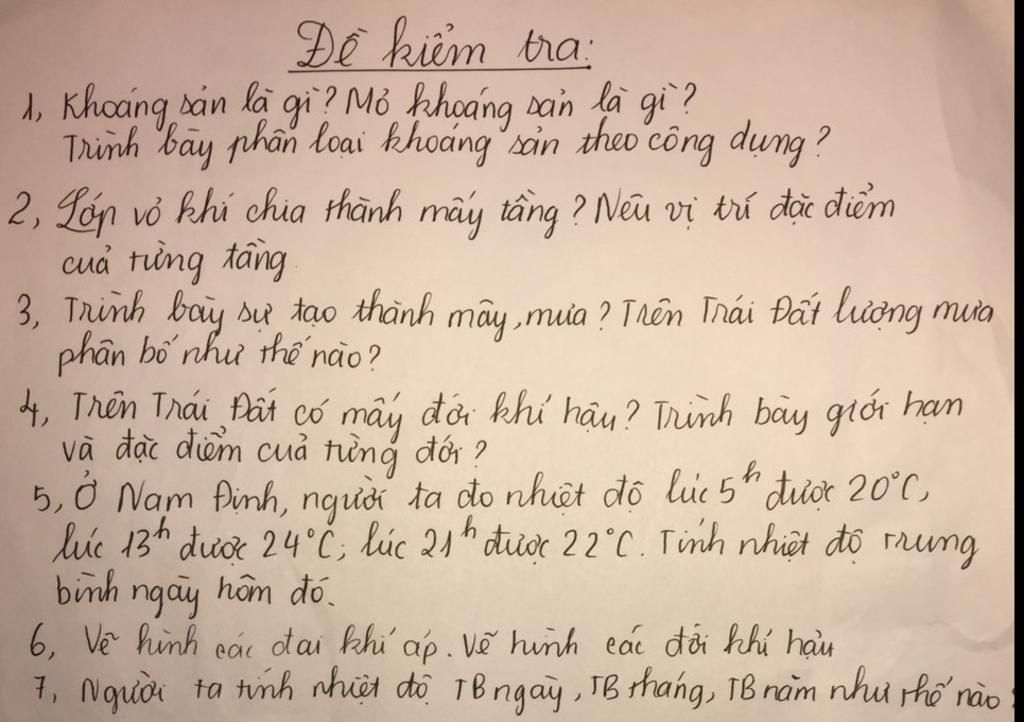 Đề kiểm tra:
1, Khoáng sản là gì? Mỏ khoáng sản là gì?
Trình bày phân loại khoáng sản theo công dụng?
2, Lớp vỏ khí chia thành mấy tầng? Nêu vị trí đặc điểm
của từng tầng
3, Trình bày sự tạo thành mây, mưa? Trên Trái Đất lượng mưa
phân bố như thế nào?
4, Trên Trái Đất có mấy đới khí hậu? Trình bày giới hạn
và đặc điểm của từng đới?
5, Ở Nam Định, người ta đo nhiệt độ lúc 5h được 20°C,
lúc 13h được 24°C; lúc 21h được 22°C. Tính nhiệt độ trung
bình ngày hôm đó.
6, Vẽ hình các đai khí áp. Vẽ hình các đới khí hậu
7, Người ta tính nhiệt độ TB ngày, TB tháng, TB năm như thế nào?